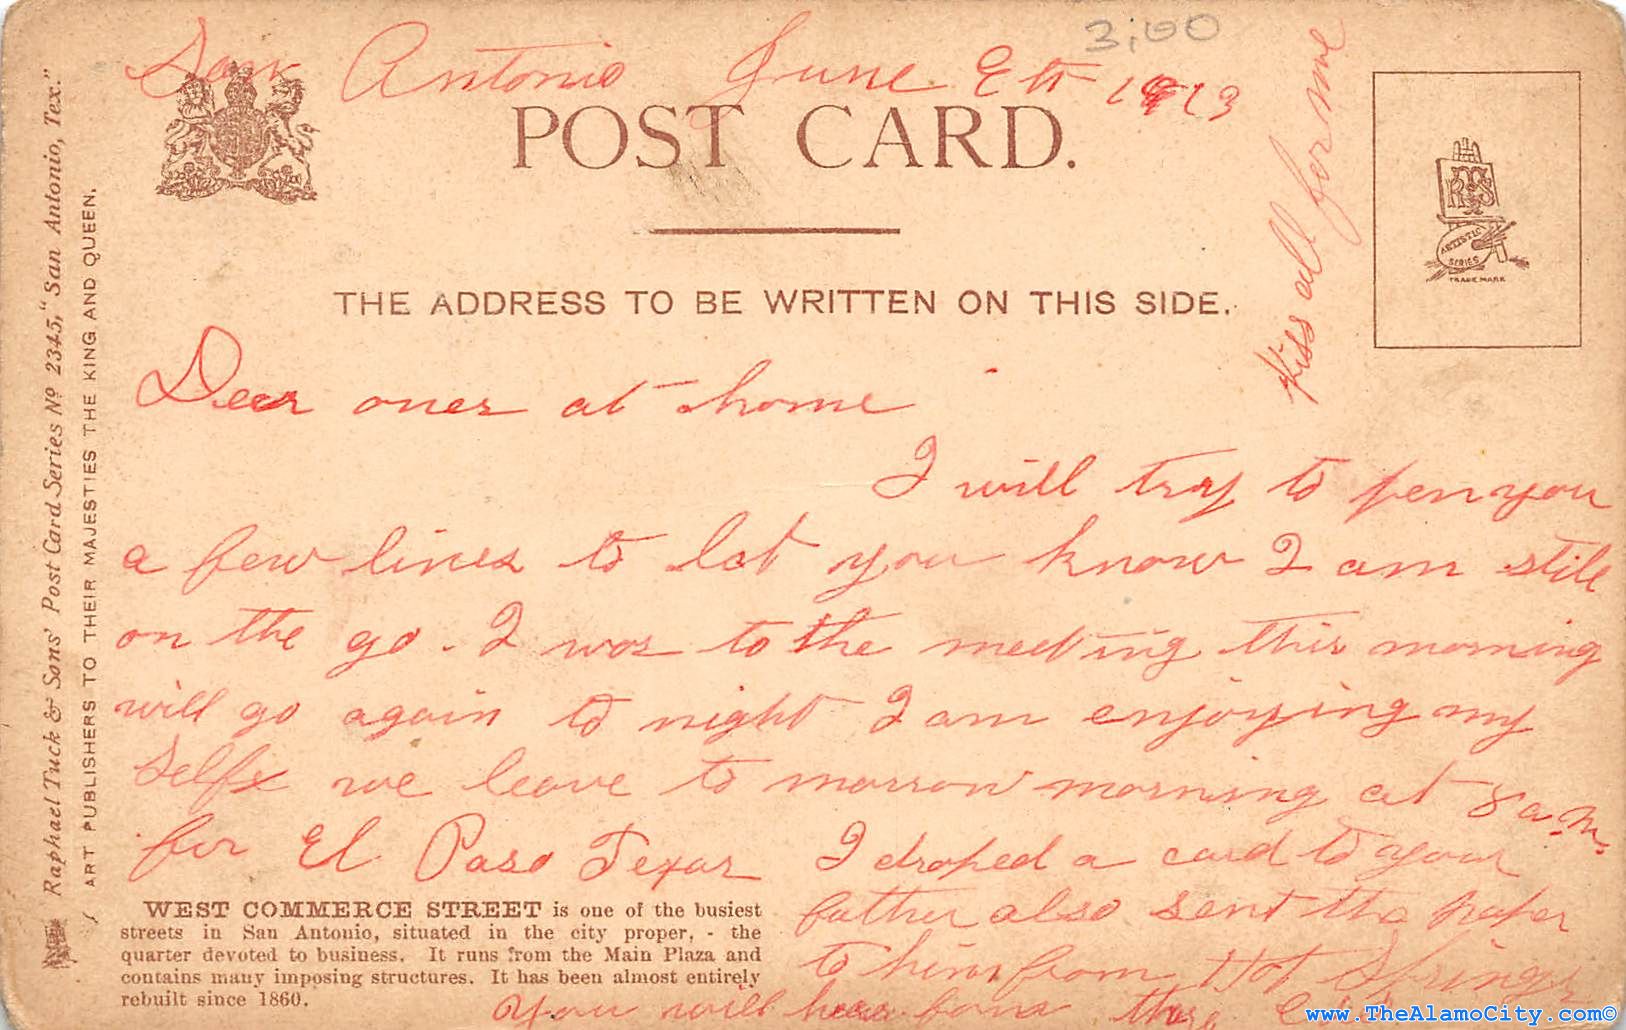 3;00
San Antonio June 8th 1913
POST CARD.
Kiss all for me
RTS
ARTISTIC SERIES
TRADE MARK
THE ADDRESS TO BE WRITTEN ON THIS SIDE.
Raphael Tuck & Sons' Post Card Series No 2345, "San Antonio, Tex."
ART PUBLISHERS TO THEIR MAJESTIES THE KING AND QUEEN.
Dear ones at home
I will try to pen you
a few lines to let you know I am still
on the go. I was to the meeting this morning
will go again to night I am enjoying my
self we leave to morrow morning at 8 a.m.
for El Paso Texas I droped a card to your
father also sent the paper
to him from Hot Springs
You will hear from the
WEST COMMERCE STREET is one of the busiest
streets in San Antonio, situated in the city proper, - the
quarter devoted to business. It runs from the Main Plaza and
contains many imposing structures. It has been almost entirely
rebuilt since 1860.
www.TheAlamoCity.com©